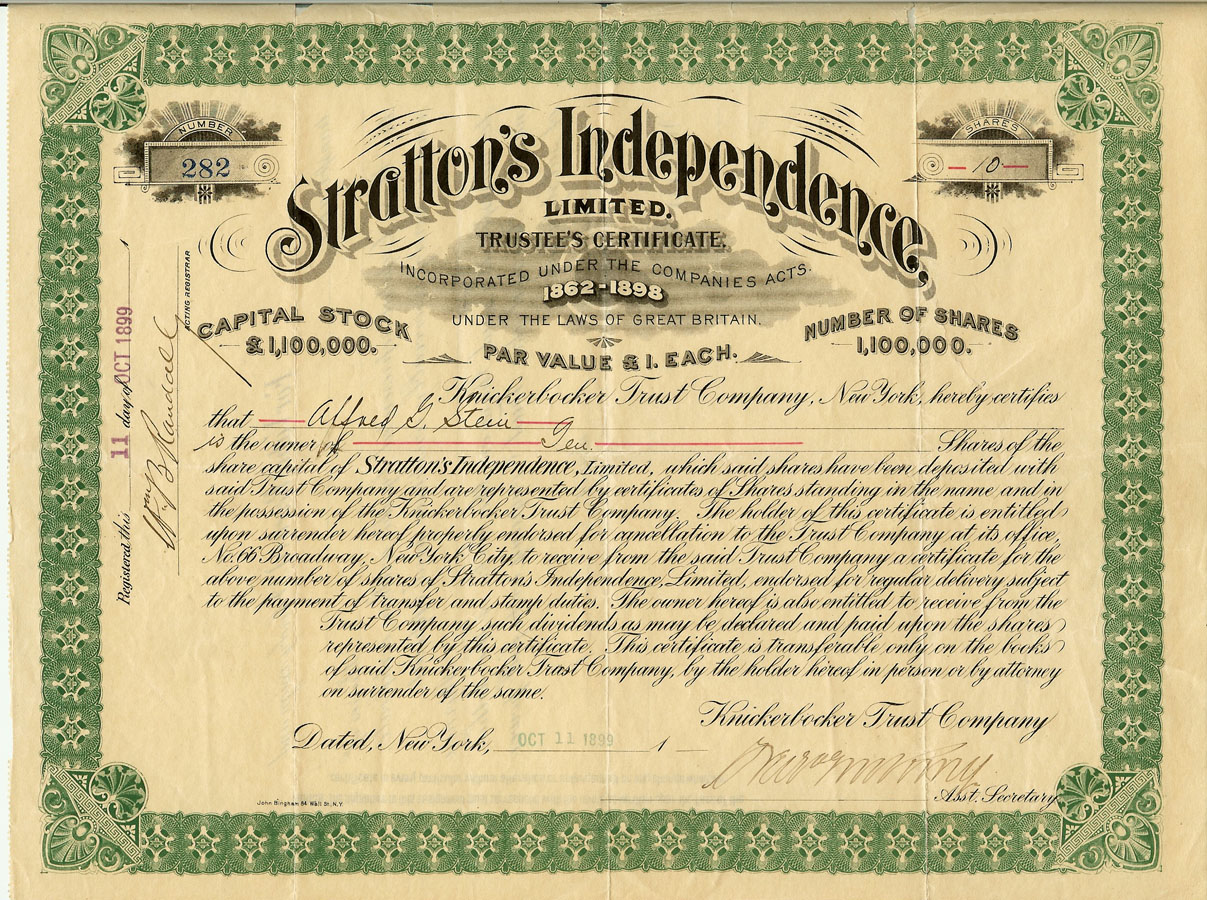 NUMBER
282
SHARES
— 10 —
Stratton's Independence,
LIMITED.
TRUSTEE'S CERTIFICATE.
INCORPORATED UNDER THE COMPANIES ACTS.
1862-1898
UNDER THE LAWS OF GREAT BRITAIN.
CAPITAL STOCK
£1,100,000.
PAR VALUE £1. EACH.
NUMBER OF SHARES
1,100,000.
Knickerbocker Trust Company, New York, hereby certifies
that Alfred G. Stein
is the owner of Ten Shares of the
share capital of Stratton's Independence, Limited, which said shares have been deposited with
said Trust Company and are represented by certificates of Shares standing in the name and in
the possession of the Knickerbocker Trust Company. The holder of this certificate is entitled
upon surrender hereof properly endorsed for cancellation to the Trust Company at its office,
No. 66 Broadway, New York City, to receive from the said Trust Company a certificate for the
above number of shares of Stratton's Independence, Limited, endorsed for regular delivery subject
to the payment of transfer and stamp duties. The owner hereof is also entitled to receive from the
Trust Company such dividends as may be declared and paid upon the shares
represented by this certificate. This certificate is transferable only on the books
of said Knickerbocker Trust Company, by the holder hereof in person or by attorney
on surrender of the same.
Knickerbocker Trust Company
Dated, New York, OCT 11 1899 1
Asst. Secretary
John Bingham 64 Wall St., N.Y.
Registered this 11 day of OCT 1899 1
Wm B Randall
ACTING REGISTRAR